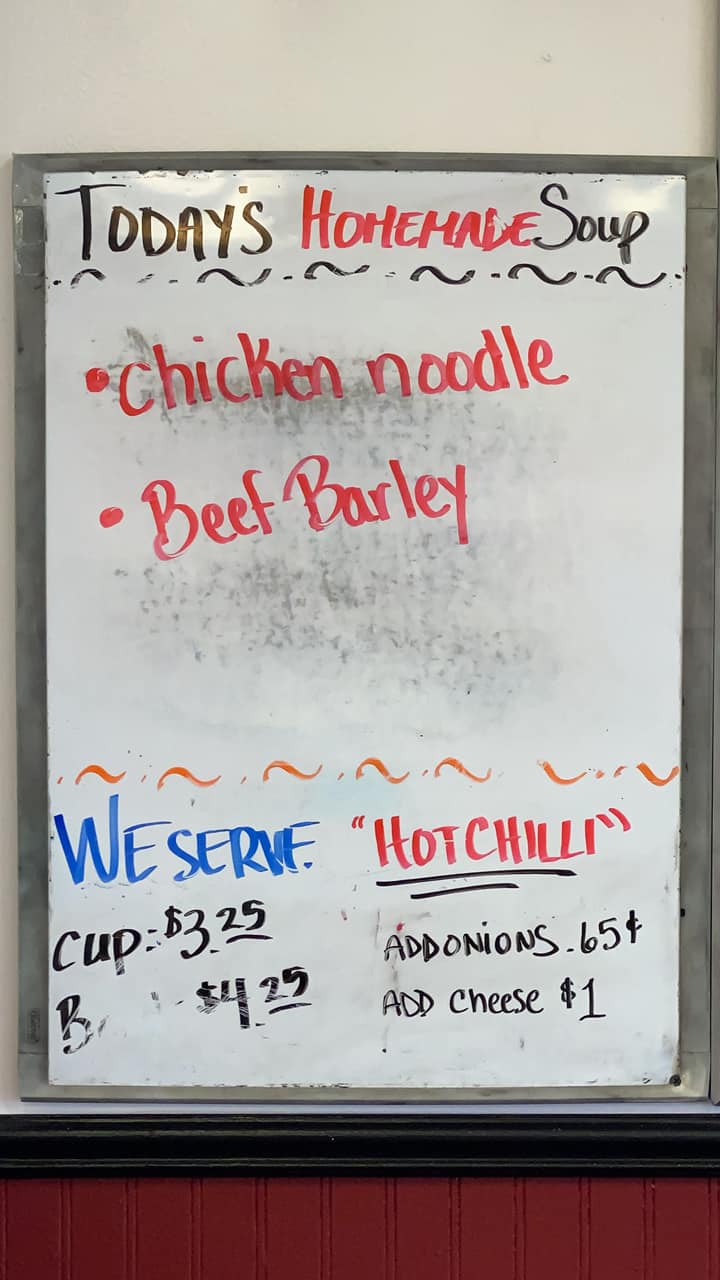 TODAY'S HOMEMADE Soup
• chicken noodle
• Beef Barley
WE SERVE "HOT CHILLI"
CUP: $3.25
ADD ONIONS .65¢
B $4.25
ADD cheese $1